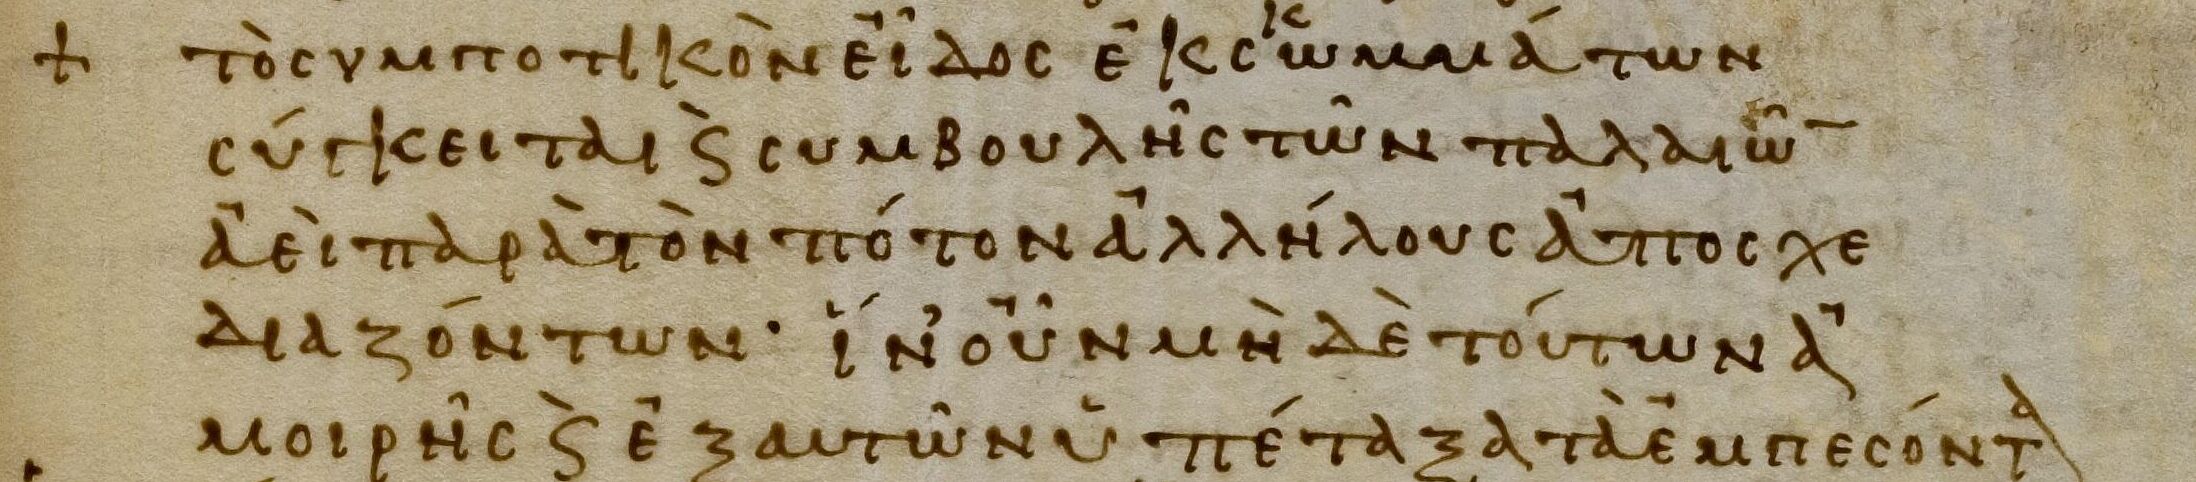 + τὸ συμποτικὸν εἶδος ἐκ σκωμμάτων
σύγκειται ϛ̀ συμβουλῆς τῶν παλαιῶ̅
ἀεὶ παρὰ τὸν πότον ἀλλήλους ἀποσχε
διαζόντων· ἵν' οὖν μὴ δὲ τούτων ἀ
μοιρῆς ϛ̀ ἐξ αυτῶν ὑπέταξα τὰ ἐμπεσόντα